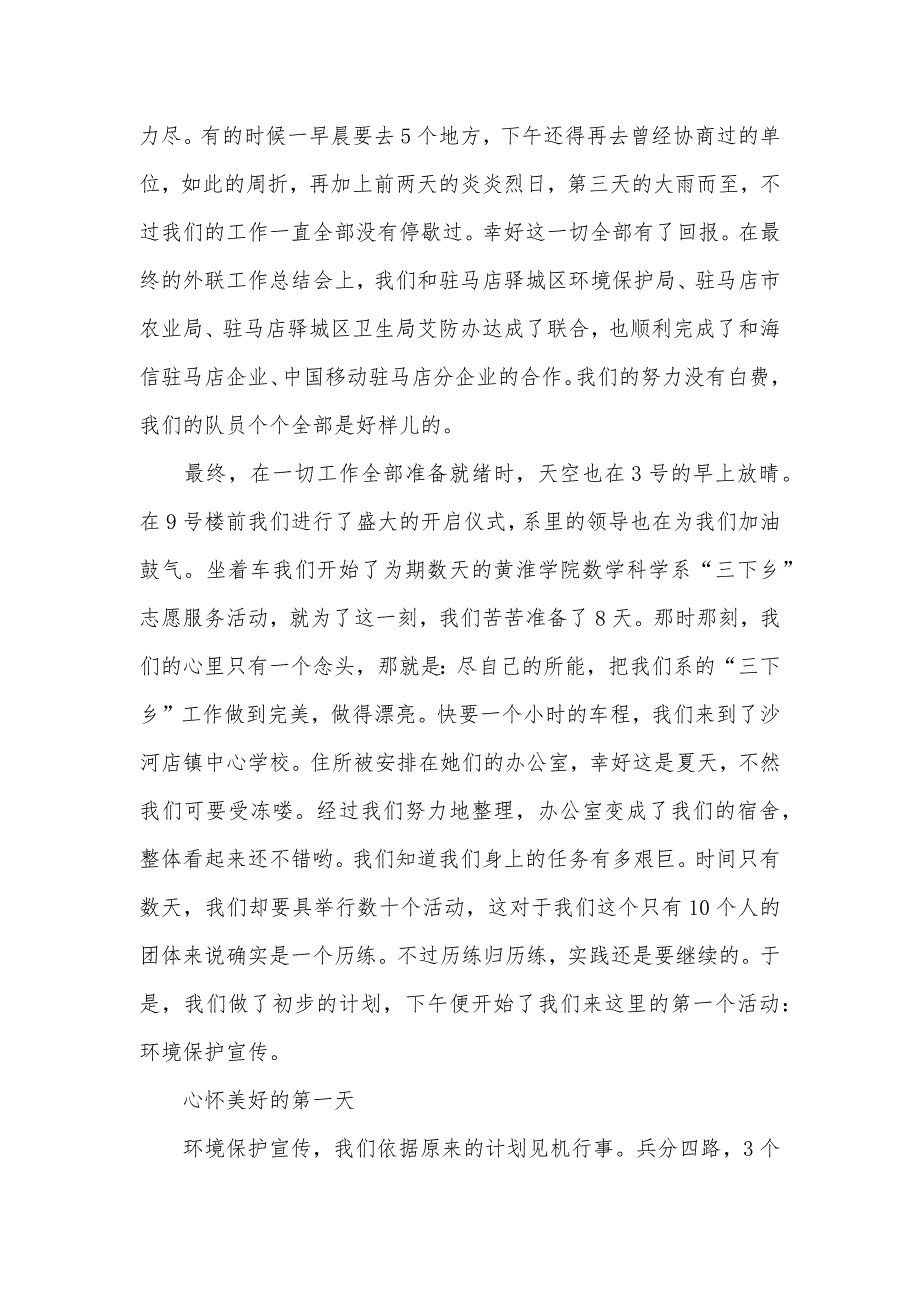 力尽。有的时候一早晨要去5个地方，下午还得再去曾经协商过的单
位，如此的周折，再加上前两天的炎炎烈日，第三天的大雨而至，不
过我们的工作一直全部没有停歇过。幸好这一切全部有了回报。在最
终的外联工作总结会上，我们和驻马店驿城区环境保护局、驻马店市
农业局、驻马店驿城区卫生局艾防办达成了联合，也顺利完成了和海
信驻马店企业、中国移动驻马店分企业的合作。我们的努力没有白费，
我们的队员个个全部是好样儿的。
最终，在一切工作全部准备就绪时，天空也在3号的早上放晴。
在9号楼前我们进行了盛大的开启仪式，系里的领导也在为我们加油
鼓气。坐着车我们开始了为期数天的黄淮学院数学科学系“三下乡”
志愿服务活动，就为了这一刻，我们苦苦准备了8天。那时那刻，我
们的心里只有一个念头，那就是：尽自己的所能，把我们系的“三下
乡”工作做到完美，做得漂亮。快要一个小时的车程，我们来到了沙
河店镇中心学校。住所被安排在她们的办公室，幸好这是夏天，不然
我们可要受冻喽。经过我们努力地整理，办公室变成了我们的宿舍，
整体看起来还不错哟。我们知道我们身上的任务有多艰巨。时间只有
数天，我们却要具举行数十个活动，这对于我们这个只有10个人的
团体来说确实是一个历练。不过历练归历练，实践还是要继续的。于
是，我们做了初步的计划，下午便开始了我们来这里的第一个活动：
环境保护宣传。
心怀美好的第一天
环境保护宣传，我们依据原来的计划见机行事。兵分四路，3个